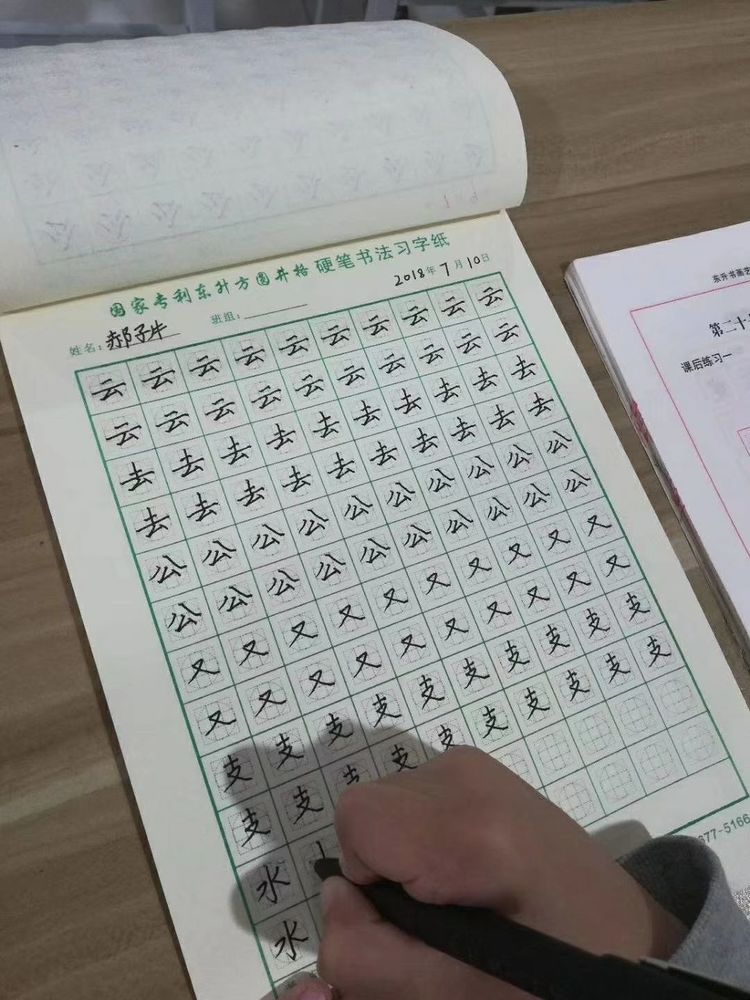 国家专利东升方圆井格 硬笔书法习字纸
姓名: 班组: 2018年7月10日
云云云云云云云云云云
云云云云云云云云云云
去去去去去去去去去去
去去去去去去去去去去
公公公公公公公公公公
公公公公公公公公公公
又又又又又又又又又又
又又又又又又又又又又
支支支支支支支支支支
支支支支支支支支支支
水
水
677-5166
东升书画
第二十
课后练习一